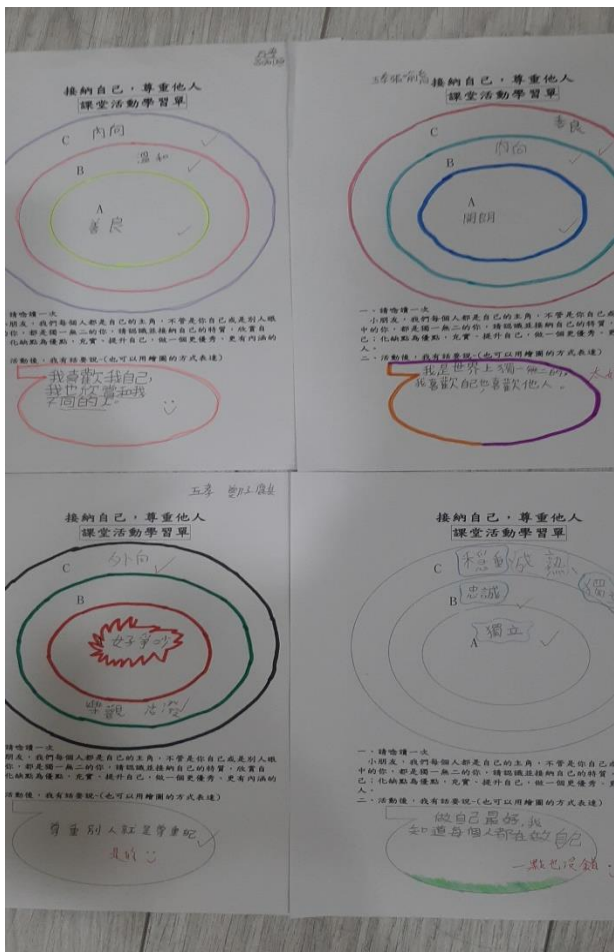 五孝
接納自己，尊重他人
課堂活動學習單
C 內向
B 溫和
A
善良
請唸讀一次
小朋友，我們每個人都是自己的主角，不管是你自己或是別人眼
的你，都是獨一無二的你，請認識並接納自己的特質，欣賞自
化缺點為優點，充實、提升自己，做一個更優秀、更有內涵的
活動後，我有話要說~(也可以用繪圖的方式表達)
我喜歡我自己，
我也欣賞和我
不同的人。
接納自己，尊重他人
課堂活動學習單
C 善良
B 內向
A
開朗
一、請唸讀一次
小朋友，我們每個人都是自己的主角，不管是你自己或是別人眼
中的你，都是獨一無二的你，請認識並接納自己的特質，
己；化缺點為優點，充實、提升自己，做一個更優秀、更有內涵
人。
二、活動後，我有話要說~(也可以用繪圖的方式表達)
我是世界上獨一無二的。
我喜歡自己也喜歡他人。
五孝
接納自己，尊重他人
課堂活動學習單
C 外向
B
好爭吵
樂觀 活潑
請唸讀一次
朋友，我們每個人都是自己的主角，不管是你自己或是別人眼
你，都是獨一無二的你，請認識並接納自己的特質，欣賞自
化缺點為優點，充實、提升自己，做一個更優秀、更有內涵的
活動後，我有話要說~(也可以用繪圖的方式表達)
尊重別人就是尊重自己
是的
接納自己，尊重他人
課堂活動學習單
C 穩重 成熟、
B 忠誠
A 獨立
一、請唸讀一次
小朋友，我們每個人都是自己的主角，不管是你自己或是別
中的你，都是獨一無二的你，請認識並接納自己的特質，
己；化缺點為優點，充實、提升自己，做一個更優秀、更有內
人。
二、活動後，我有話要說~(也可以用繪圖的方式表達)
做自己最好，我
知道每個人都在做自己
一點也沒錯